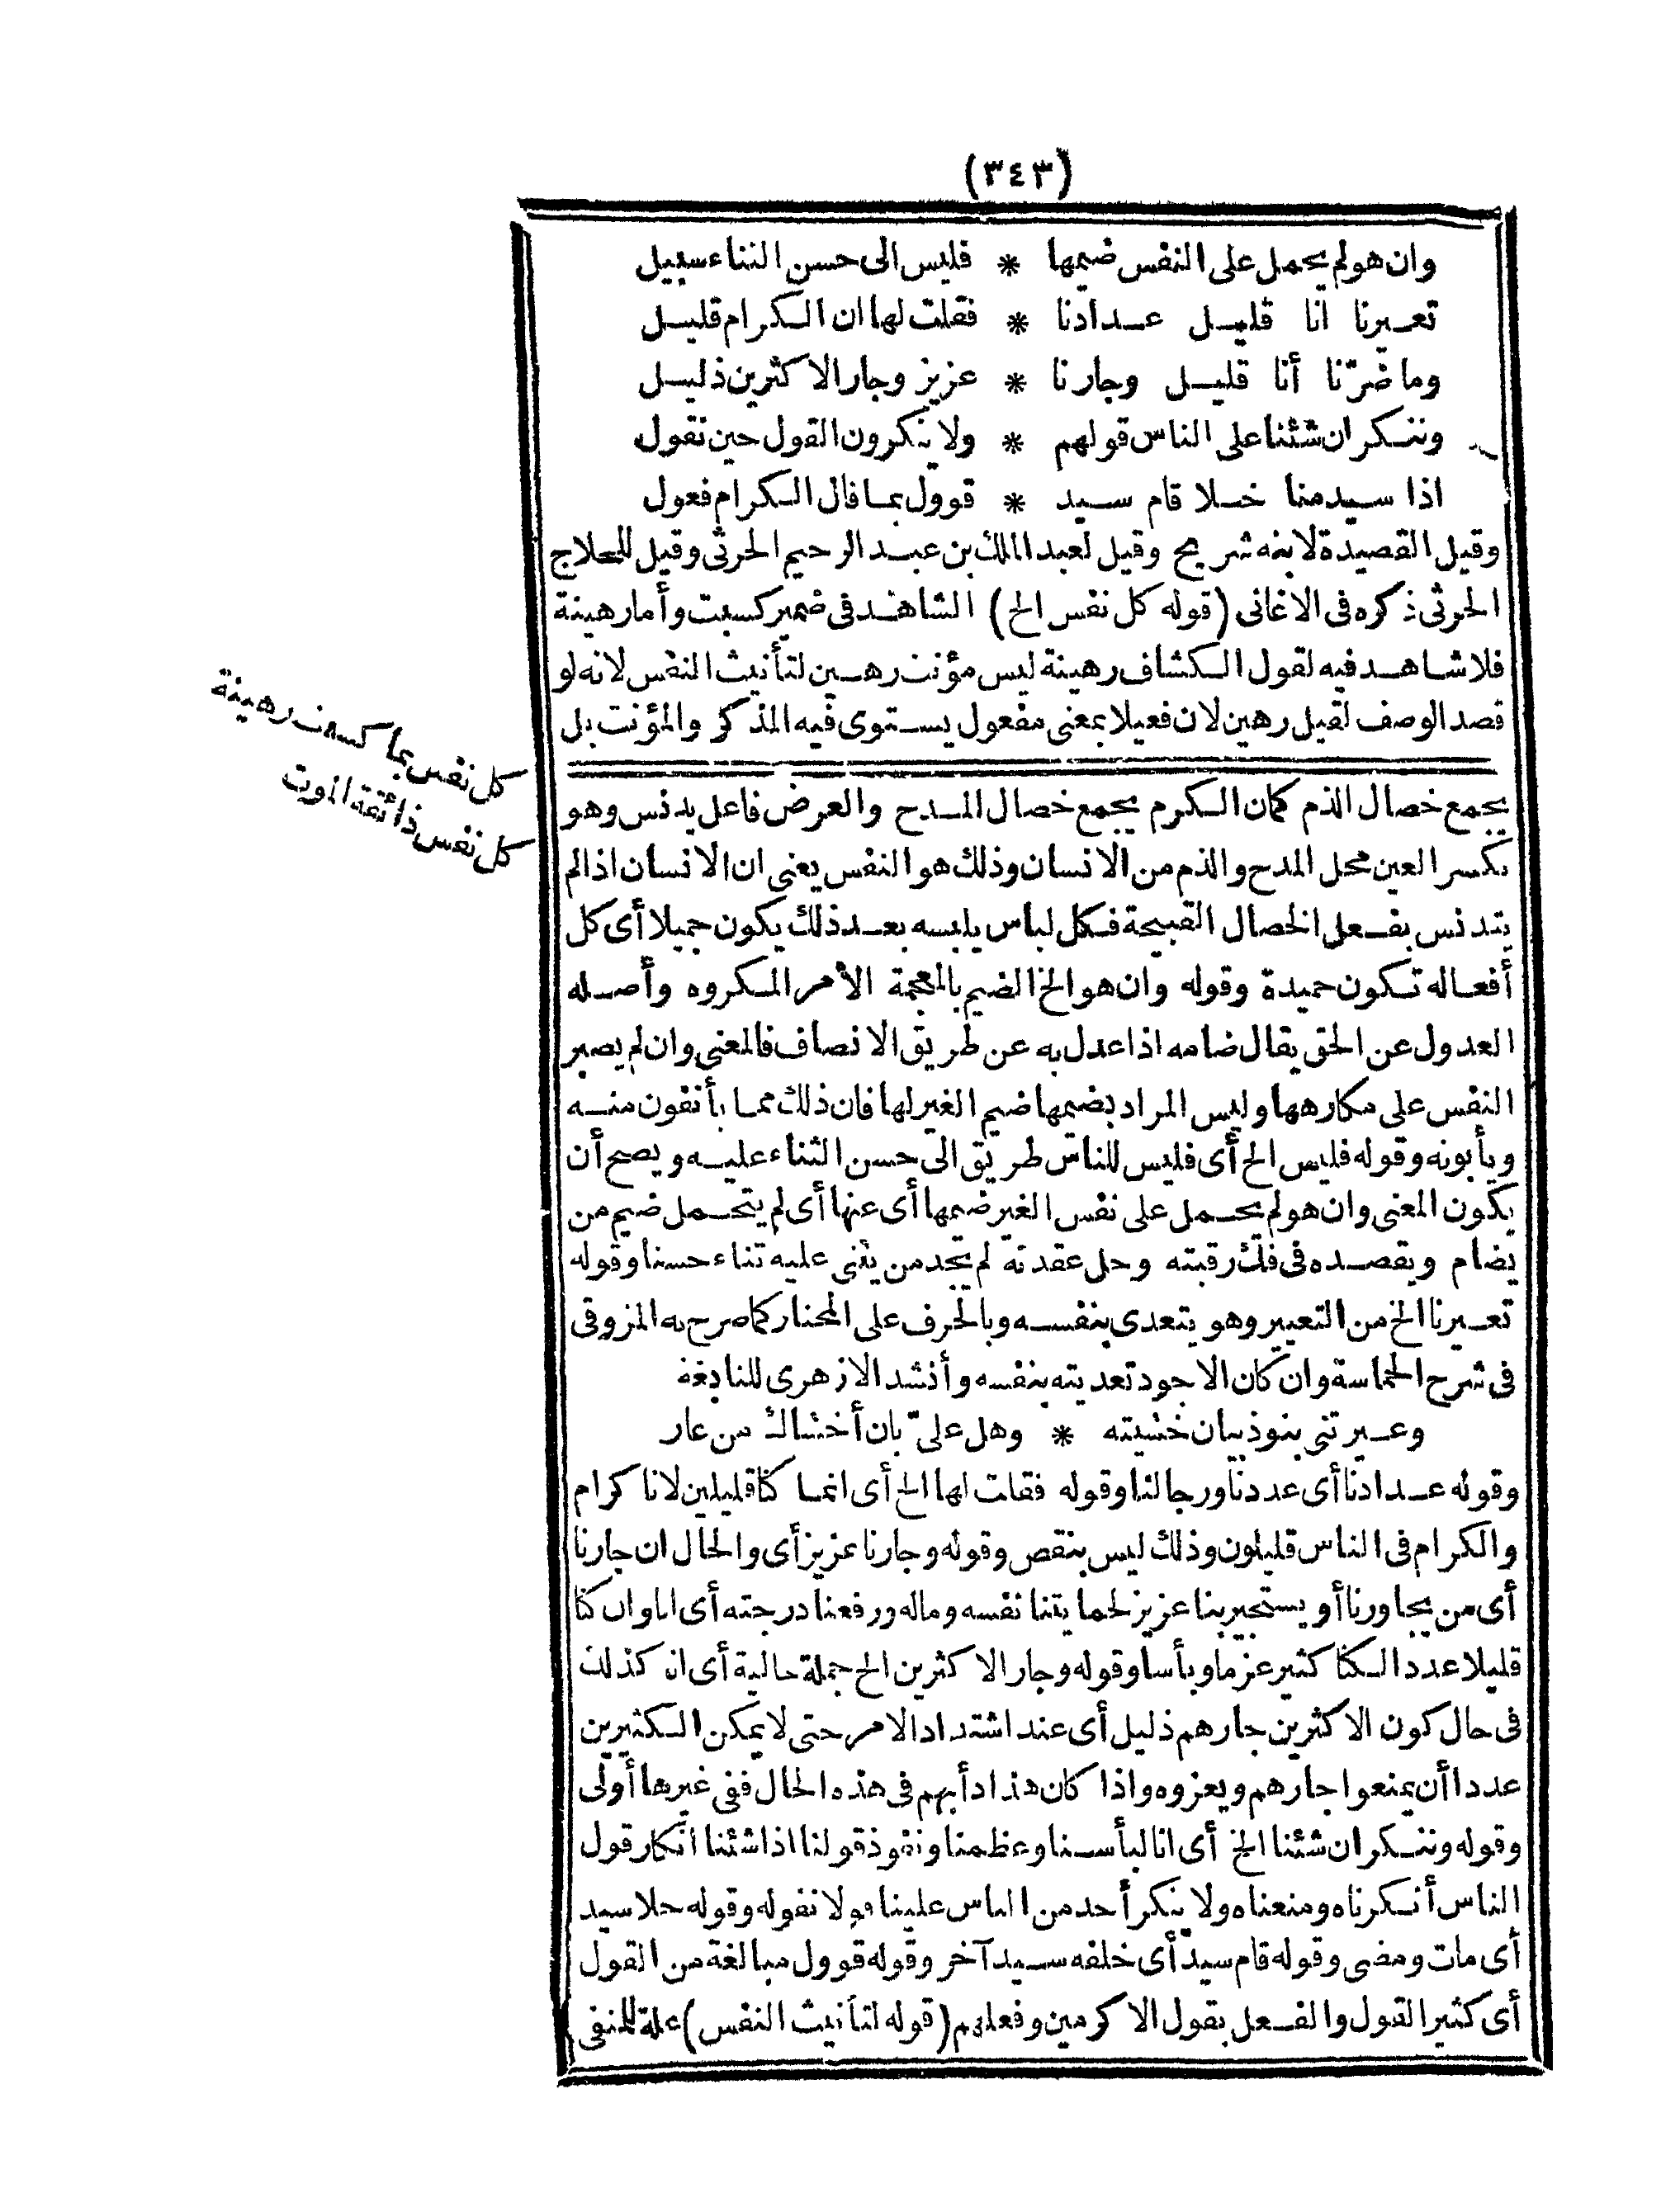 (٣٤٣)
وان هو لم يحمل على النفس ضيمها * فليس الى حسن الثناء سبيل
تعــيرنا انا قليــل عــدادنا * فقلت لها ان الـكرام قليــل
وما ضرّنا أنا قليــل وجارنا * عزيز وجار الاكثرين ذليــل
وننــكر ان شئنا على الناس قولهم * ولا ينكرون القول حين نقول
اذا ســيد منا خــلا قام ســيد * قوول بمــا قال الـكرام فعول
وقيل القصيدة لابنه شريح وقيل لعبد الملك بن عبــد الرحيم الحرثى وقيل للجلاج
الحرثى ذكره فى الاغانى (قوله كل نفس الخ) الشاهــد فى ضمير كسبت وأما رهينة
فلا شاهــد فيه لقول الـكشاف رهينة ليس مؤنث رهــين لتأنيث النفس لانه لو
قصد الوصف لقيل رهين لان فعيلا بمعنى مفعول يســتوى فيه المذكر والمؤنث بل
كل نفس بما كسبت رهينة
كل نفس ذائقة الموت
يجمع خصال الذم كمان الـكرم يجمع خصال المــدح والعرض فاعل يدنس وهو
بكسر العين محل المدح والذم من الانسان وذلك هو النفس يعنى ان الانسان اذا لم
يتدنس بفــعل الخصال القبيحة فـكل لباس يلبسه بعــد ذلك يكون جميلا أى كل
أفعــاله تـكون حميدة وقوله وان هو الخ الضيم بالمعجمة الأمر المـكروه وأصــله
العدول عن الحق يقال ضامه اذا عدل به عن طريق الانصاف فالمعنى وان لم يصبر
النفس على مكارهها وليس المراد بضيمها ضيم الغير لها فان ذلك ممــا يأنفون منــه
ويأبونه وقوله فليس الخ أى فليس للناس طريق الى حسن الثناء عليــه ويصح أن
يكون المعنى وان هو لم يحــمل على نفس الغير ضيمها أى عنها أى لم يتحــمل ضيم من
يضام ويقصــده فى فك رقبته وحل عقدته لم يجد من يثنى عليه ثناء حسنا وقوله
تعــيرنا الخ من التعيير وهو يتعدى بنفســه وبالحرف على المختار كما صرح به المرزوقى
فى شرح الحماسة وان كان الاجود تعديته بنفسه وأنشد الازهرى للنابغة
وعــيرتنى بنو ذبيان خشيته * وهل علىّ بان أخشاك من عار
وقوله عــدادنا أى عددنا ورجالنا وقوله فقلت لها الخ أى انمــا كنا قليلين لانا كرام
والكرام فى الناس قليلون وذلك ليس بنقص وقوله وجارنا عزيز أى والحال ان جارنا
أى من يجاورنا أو يستجير بنا عزيز لحمايتنا نفسه وماله ورفعنا درجته أى انا وان كنا
قليلا عددا لـكنا كثير عزما وبأسا وقوله وجار الاكثرين الخ جملة حالية أى انا كذلك
فى حال كون الاكثرين جارهم ذليل أى عند اشتداد الامر حتى لا يمكن الـكثيرين
عددا أن يمنعوا جارهم ويعزوه واذا كان هذا دأبهم فى هذه الحال ففى غيرها أولى
وقوله وننــكر ان شئنا الخ أى انا لبأســنا وعظمنا ونفوذ قولنا اذا شئنا انكار قول
الناس أنـكرناه ومنعناه ولا ينكر أحد من الناس علينا قولا نقوله وقوله خلا سيد
أى مات ومضى وقوله قام سيد أى خلفه ســيد آخر وقوله قوول مبالغة من القول
أى كثير القول والفــعل بقول الاكرمين وفعلهم (قوله لتأنيث النفس) علة للمنفى